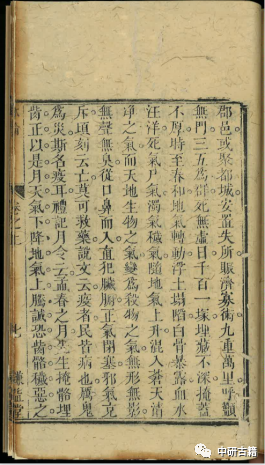 郡邑或聚都城安置失所賑濟寡術九重萬里呼籲
無門三五為群死無虛日千百一塚埋藏不深掩蓋
不厚時至春和地氣轉動浮土塌陷白骨暴露血水
汪洋死氣尸氣濁氣穢氣隨地氣上升混入蒼天清
淨之氣而天地生物之氣變為殺物之氣無形無影
無聲無臭從口鼻而入直犯臟腑正氣閉塞邪氣充
斥頃刻云亡莫可救藥說文云疫者民皆病也厲鬼
為災斯名疫耳禮記月令云孟春之月先生掩骼埋
胔正以是月天氣下降地氣上騰誠恐胔骼穢惡之
卷之上
中研古籍